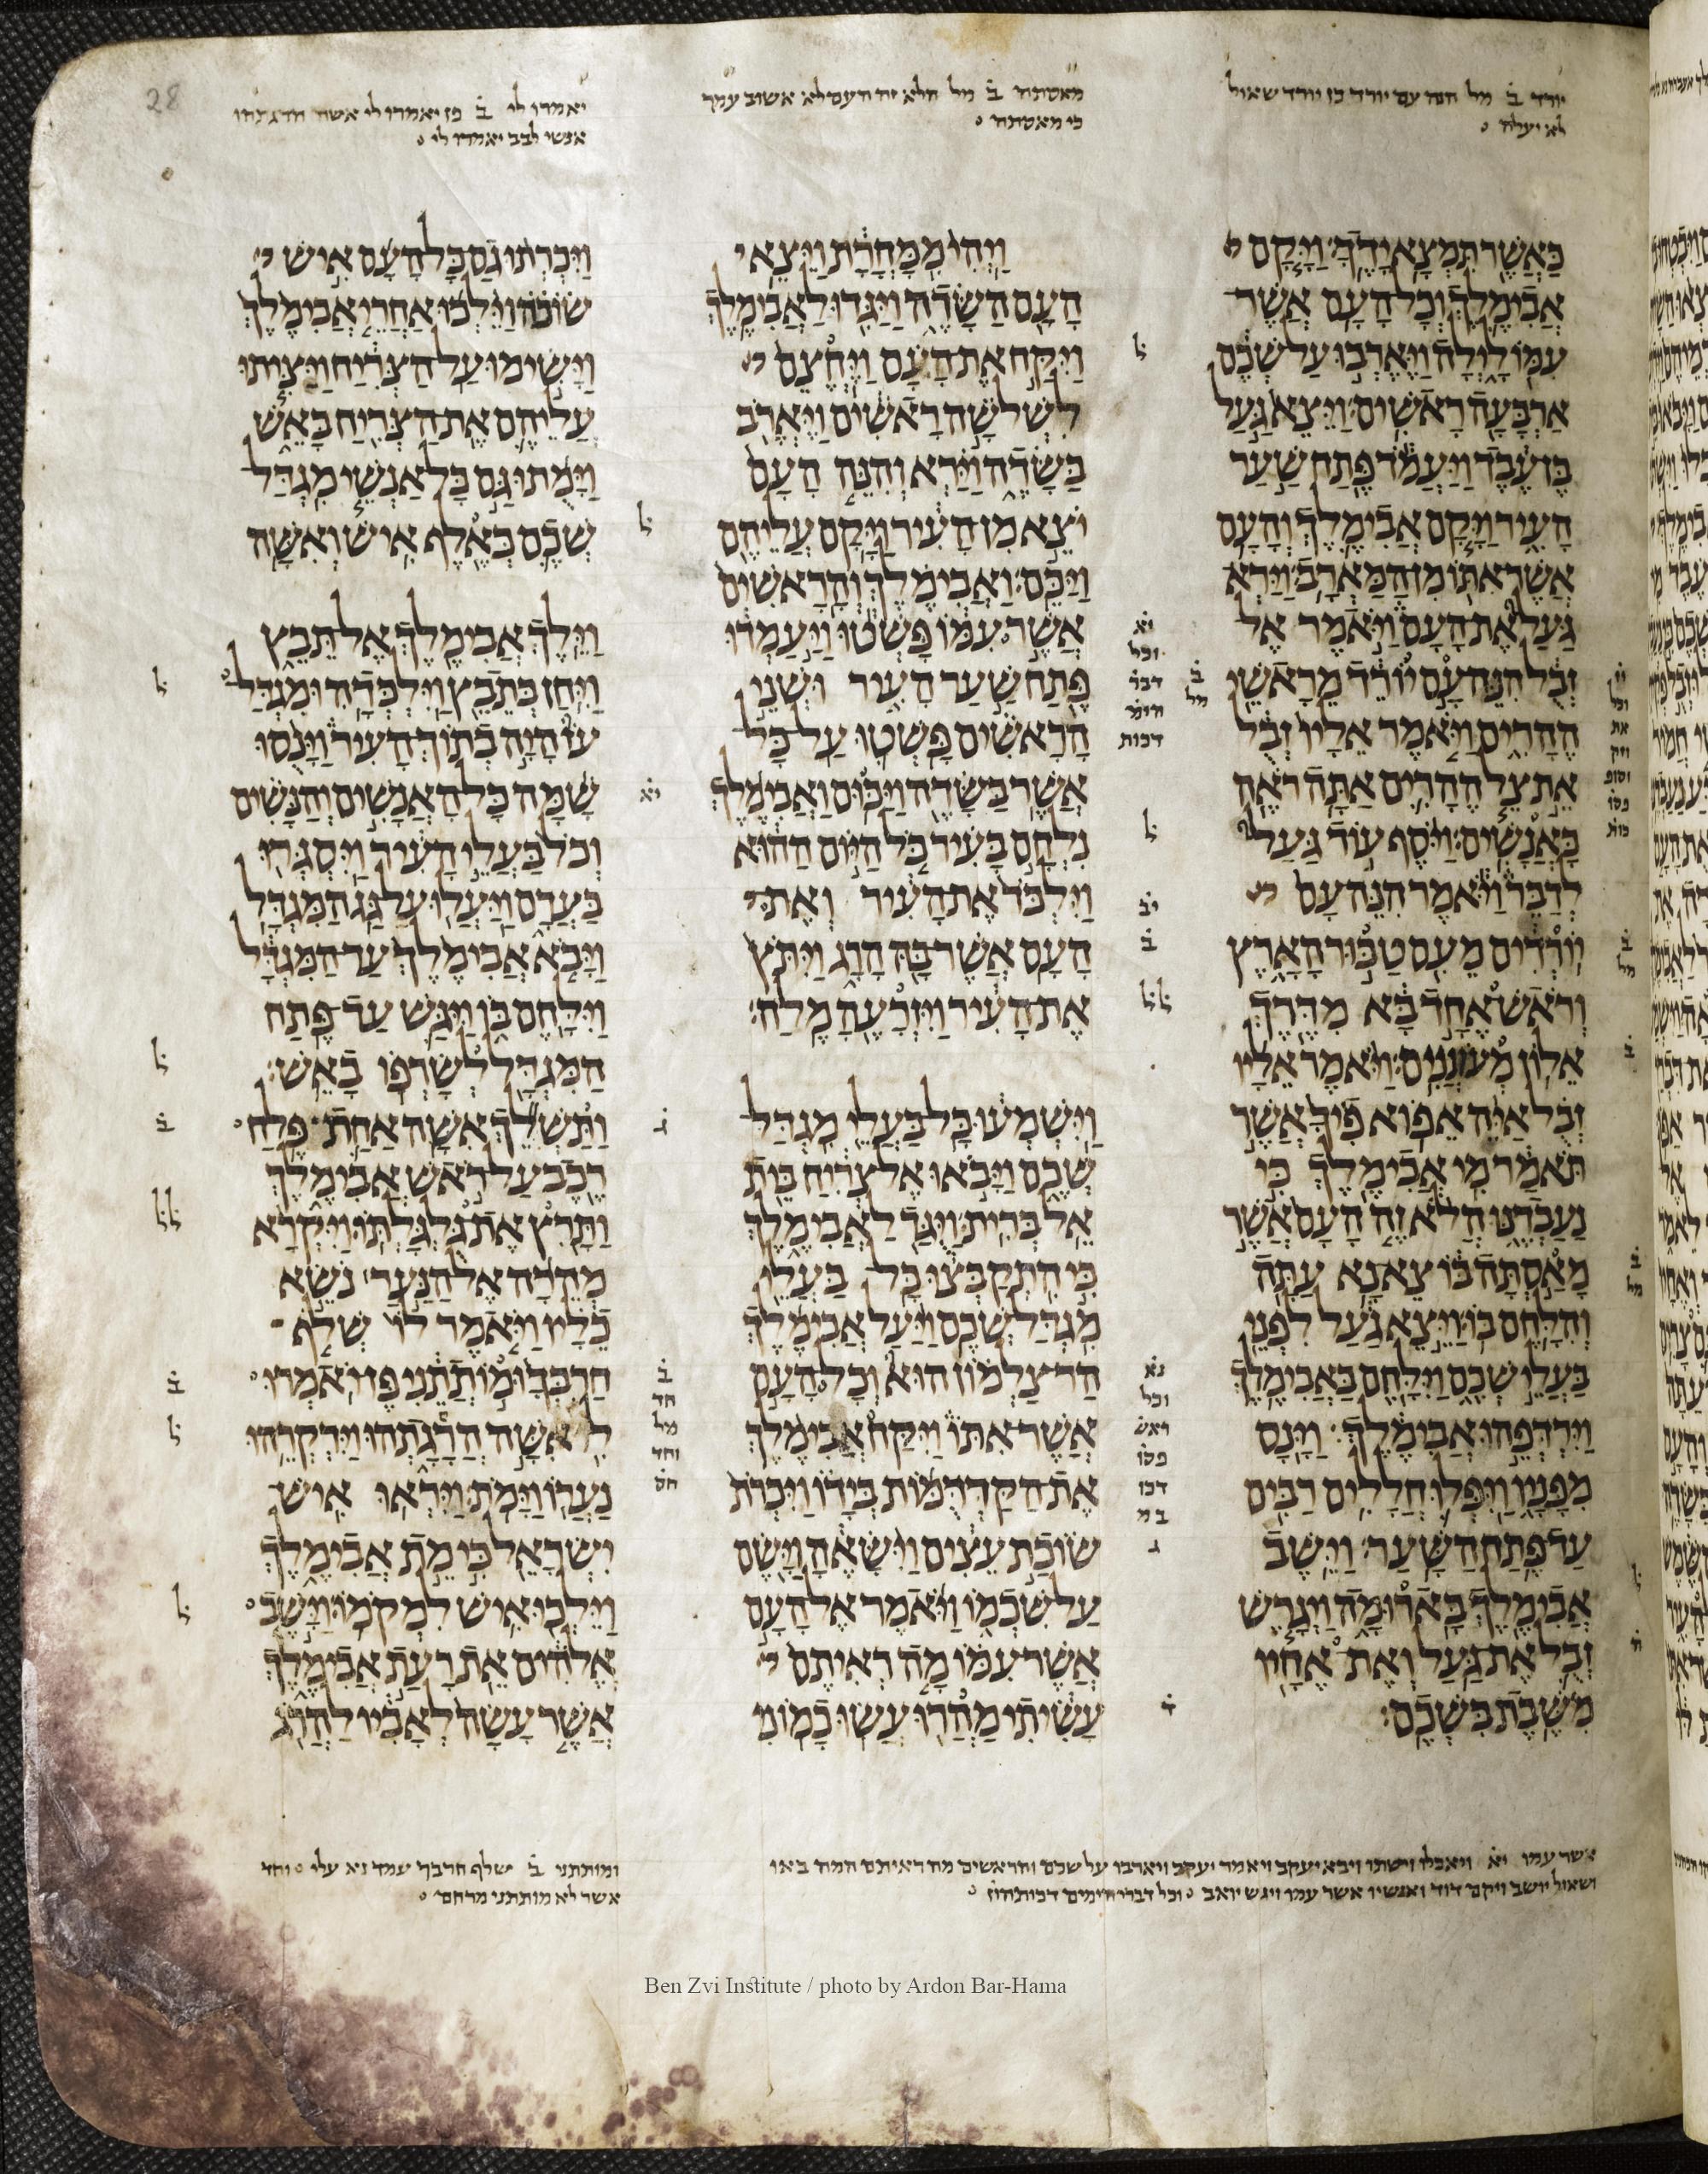 28
יורד ב מל הנה עם יורד כן יורד שאול
לא יעלה
מאסתה ב מל הלא זה העם לא אשוב עמך
כי מאסתה
יאמרו לי ב פן יאמרו לי אשה הרגתהו
אנשי לבב יאמרו לי
כאשר תמצא ידך׃ ויקם
אבימלך וכל העם אשר
עמו לילה ויארבו על שכם
ארבעה ראשים׃ ויצא געל
בן עבד ויעמד פתח שער
העיר ויקם אבימלך והעם
אשר אתו מן המארב׃ וירא
געל את העם ויאמר אל
זבל הנה עם יורד מראשי
ההרים ויאמר אליו זבל
את צל ההרים אתה ראה
כאנשים׃ ויסף עוד געל
לדבר ויאמר הנה עם
יורדים מעם טבור הארץ
וראש אחד בא מדרך
אלון מעוננים׃ ויאמר אליו
זבל איה אפוא פיך אשר
תאמר מי אבימלך כי
נעבדנו הלא זה העם אשר
מאסתה בו צא נא עתה
והלחם בו׃ ויצא געל לפני
בעלי שכם וילחם באבימלך׃
וירדפהו אבימלך וינס
מפניו ויפלו חללים רבים
עד פתח השער׃ וישב
אבימלך בארומה ויגרש
זבל את געל ואת אחיו
משבת בשכם׃
ויהי ממחרת ויצא
העם השדה ויגדו לאבימלך׃
ויקח את העם ויחצם
לשלשה ראשים ויארב
בשדה וירא והנה העם
יצא מן העיר ויקם עליהם
ויכם׃ ואבימלך והראשים
אשר עמו פשטו ויעמדו
פתח שער העיר ושני
הראשים פשטו על כל
אשר בשדה ויכום׃ ואבימלך
נלחם בעיר כל היום ההוא
וילכד את העיר ואת
העם אשר בה הרג ויתץ
את העיר ויזרעה מלח׃
וישמעו כל בעלי מגדל
שכם ויבאו אל צריח בית
אל ברית׃ ויגד לאבימלך
כי התקבצו כל בעלי
מגדל שכם׃ ויעל אבימלך
הר צלמון הוא וכל העם
אשר אתו ויקח אבימלך
את הקרדמות בידו ויכרת
שוכת עצים וישאה וישם
על שכמו ויאמר אל העם
אשר עמו מה ראיתם
עשיתי מהרו עשו כמוני׃
ויכרתו גם כל העם איש
שוכה וילכו אחרי אבימלך
וישימו על הצריח ויציתו
עליהם את הצריח באש
וימתו גם כל אנשי מגדל
שכם כאלף איש ואשה׃
וילך אבימלך אל תבץ
ויחן בתבץ וילכדה׃ ומגדל
עז היה בתוך העיר וינסו
שמה כל האנשים והנשים
וכל בעלי העיר ויסגרו
בעדם ויעלו על גג המגדל׃
ויבא אבימלך עד המגדל
וילחם בו ויגש עד פתח
המגדל לשרפו באש׃
ותשלך אשה אחת פלח
רכב על ראש אבימלך
ותרץ את גלגלתו׃ ויקרא
מהרה אל הנער נשא
כליו ויאמר לו שלף
חרבך ומותתני פן יאמרו
לי אשה הרגתהו וידקרהו
נערו וימת׃ ויראו איש
ישראל כי מת אבימלך
וילכו איש למקמו׃ וישב
אלהים את רעת אבימלך
אשר עשה לאביו להרג
אשר עמו יא ויאכלו וישתו ויבא יעקב ויאמר יעקב ויארבו על שכם והראשים מה ראיתם המה באו
ושאול יושב ויקם דוד ואנשיו אשר עמו ויגש יואב וכל דברי הימים דכותהון
ומותתני ב שלף חרבך עמד נא עלי וחד
אשר לא מותתני מרחם
Ben Zvi Institute / photo by Ardon Bar-Hama